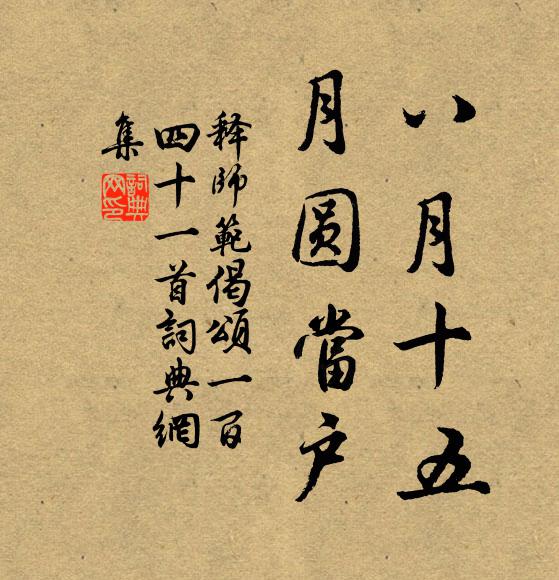 八月十五
月圆當户
释師範偈頌一百
四十一首詞典網
集
詞典
网印